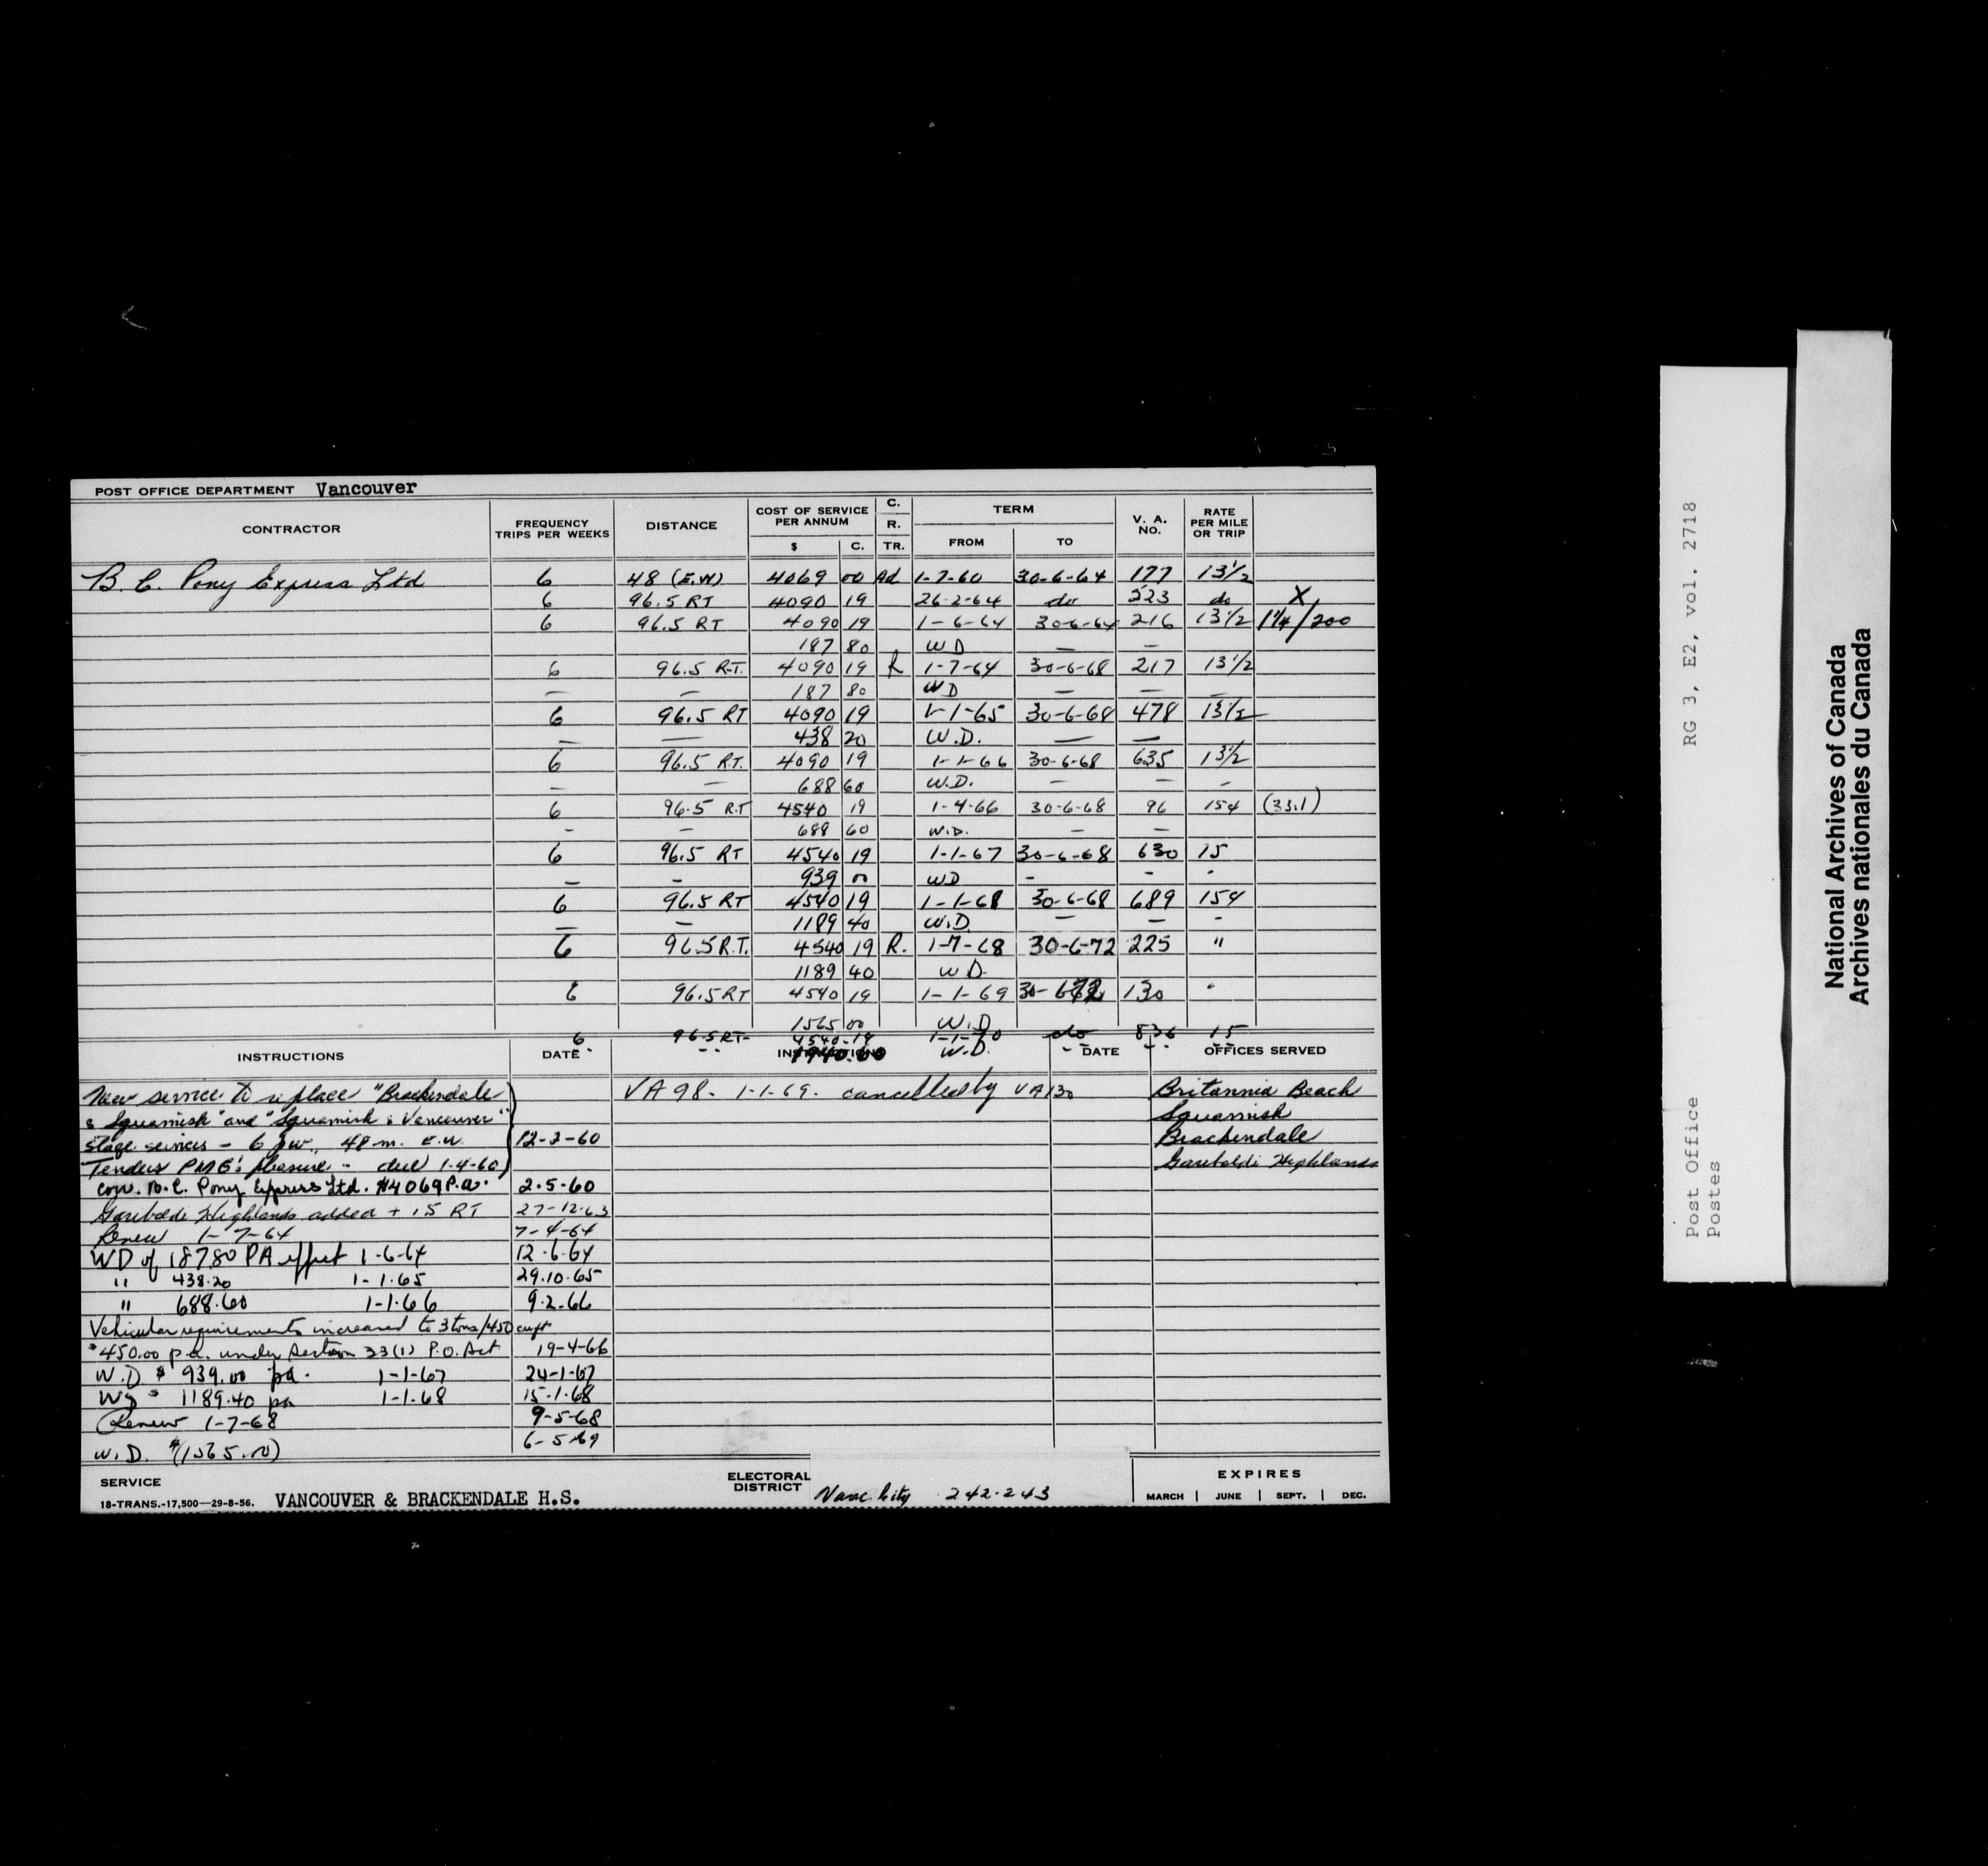 POST OFFICE DEPARTMENT Vancouver
CONTRACTOR FREQUENCY TRIPS PER WEEKS DISTANCE COST OF SERVICE PER ANNUM $ C. C. R. TR. TERM FROM TO V. A. NO. RATE PER MILE OR TRIP
B. C. Pony Express Ltd 6 48 (E.W) 4069 00 Ad 1-7-60 30-6-64 177 13½
6 96.5 RT 4090 19 26-2-64 do 223 do X
6 96.5 RT 4090 19 1-6-64 30-6-64 216 13½ 1¼/200
187 80 WD — —
6 96.5 R.T. 4090 19 R 1-7-64 30-6-68 217 13½
— — 187 80 WD — — —
6 96.5 RT 4090 19 1-1-65 30-6-68 478 13½
— — 438 20 W.D. — —
6 96.5 R.T. 4090 19 1-1-66 30-6-68 635 13½
— — 688 60 W.D. — — -
6 96.5 R.T 4540 19 1-4-66 30-6-68 96 154 (33.1)
- — 688 60 W.D. — —
6 96.5 RT 4540 19 1-1-67 30-6-68 630 15
— - 939 00 WD - - -
6 96.5 RT 4540 19 1-1-68 30-6-68 689 154
— — 1189 40 W.D. — — -
6 96.5 R.T. 4540 19 R. 1-7-68 30-6-72 225 "
1189 40 WD.
6 96.5 RT 4540 19 1-1-69 30-6-72 130 "
1565 00 W.D
6 96.5 RT- 4540-19 1-1-70 do 836 15
1940.60 W.D.
INSTRUCTIONS DATE INSTRUCTIONS DATE OFFICES SERVED
New service to replace "Brackendale VA 98. 1-1-69. cancelled by VA 130 Britannia Beach
& Squamish" and "Squamish & Vancouver" Squamish
Stage services - 6 pw., 48 m. E.W. 12-2-60 Brackendale
Tenders PMG's pleasure - due 1-4-60 Garibaldi Highlands
con. B.C. Pony Express Ltd. $4069 P.a. 2-5-60
Garibaldi Highlands added + .5 RT 27-12-63
Renew 1-7-64 7-4-64
WD of 187.80 PA effect 1-6-64 12-6-64
" 438.20 1-1-65 29.10.65
" 688.60 1-1-66 9-2-66
Vehicular requirements increased to 3 tons/450 cuft
$450.00 p.a. under Section 33(1) P.O. Act 19-4-66
W.D $ 939.00 pa. 1-1-67 24-1-67
WD $ 1189.40 pa 1-1-68 15-1-68
Renew 1-7-68 9-5-68
W.D. $(1565.00) 6-5-69
SERVICE
18-TRANS.-17,500—29-8-56. VANCOUVER & BRACKENDALE H.S.
ELECTORAL DISTRICT Vanc. City 242-243
EXPIRES
MARCH | JUNE | SEPT. | DEC.
RG 3, E2, vol. 2718
Post Office
Postes
National Archives of Canada
Archives nationales du Canada